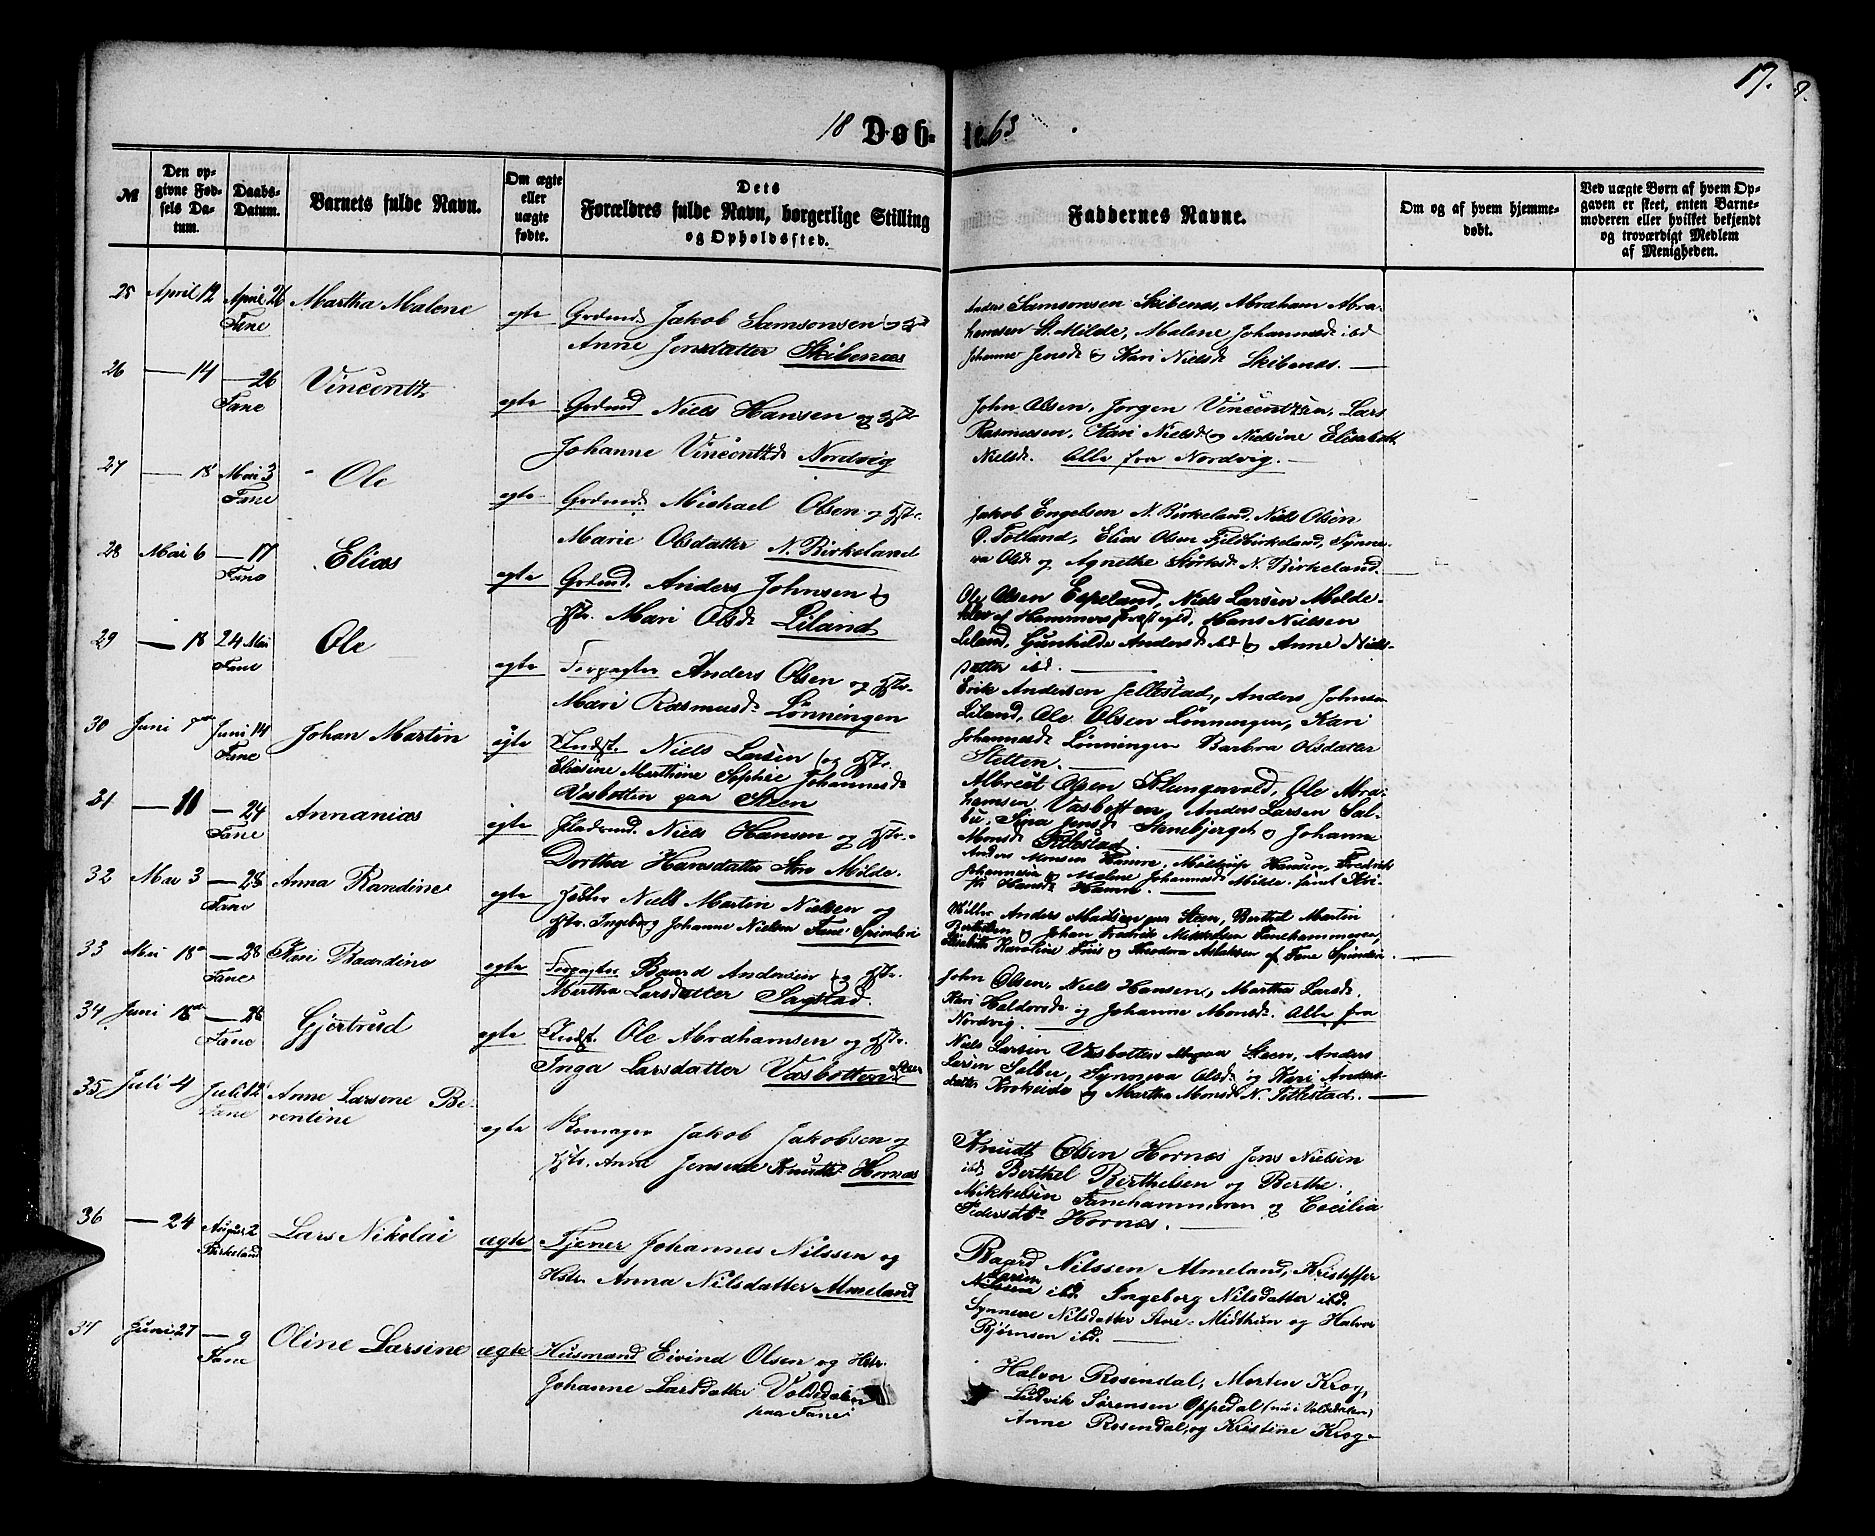 17.
18 Døb- te. 63
M
Den op-
givne Fød-
sels Da-
tum.
Daabs-
Datum.
Barnets fulde Navn.
Om ægte
eller
uægte
fødte.
Dets
Forældres fulde Navn, borgerlige Stilling
og Opholdssted.
Faddernes Navne.
Om og af hvem hjemme-
døbt.
Ved uægte Børn af hvem Op-
gaven er skeet, enten Barne-
moderen eller hvilket bekjendt
og troværdigt Medlem
af Menigheden.
25 April 12 April 26 Martha Malene
Fane
egte Grdmd. Jakob Samsonsen og
Anne Jensdatter Skibenes
Anders Samsonsen Skibenes, Abraham Abra-
hamsen St. Milde, Malene Johannesd. ibd
Johanne Jensd. og Kari Nielsd. Skibenes.
26 — 14 — 26 Vincentz
Fane
egte Grdmd Niels Hansen og Hstr.
Johanne Vincentzd. Nordvig
John Olsen, Jørgen Vincentzen, Lars
Rasmussen, Kari Nielsd. og Nielsine Elisabeth
Nielsd. Alle fra Nordvig.
27 — 18 Mai 3 Ole
Fane
egte Grdmd. Michael Olsen og Hstr.
Marie Olsdatter N. Birkeland
Jakob Engelsen N. Birkeland, Niels Olsen
Ø. Totland, Elias Olsen Fjeldbirkeland, Synne-
va Olsd. og Agnethe Størksd. N. Birkeland.
28 Mai 6 — 17 Elias
Fane
egte Grdmd. Anders Johnsen og
Hstr. Mari Olsd. Liland
Ole Olsen Espeland, Niels Larsen Milde-
af Hammers Præstegjeld, Hans Nielsen
Liland, Gunhilde Andersd. ibd og Anne Niels-
datter ibd.
29 — 18 24 Mai Ole
Fane
egte Forpagter Anders Olsen og Hstr.
Mari Rasmusd. Lønningen
Erik Andersen Jellestad, Anders Johnsen
Liland, Ole Olsen Lønningen, Kari
Johannesd. Lønningen Barbra Olsdatter
Stetten.
30 Juni Juni 14 Johan Martin
Fane
egte Indst. Niels Larsen og Hstr.
Eliesine Marthine Sophie Johannesd.
Vasbotten paa Steen
Albregt Olsen Klungsvold, Ole Abra-
hamsen Vasbotten, Anders Larsen Sal-
bu, Sina Jensd. Stenebjerget og Johanne
Monsd. Titlestad.
31 — 11 — 24 Annanias
Fane
egte Grdmd. Niels Hansen og Hstr.
Dorthea Hansdatter Sto. Milde.
Anders Monsen Hamre, Hansen, Fredrik
Johannesen og Malene Johannesd. Milde samt Kri-
Hansd. Hamre.
32 Mai 3 — 28 Anna Randine
Fane
egte Niels Martin Nielsen og
Hstr. Ingeborg Johanne Nielsen Fane Spinderi
Møller Anders Madsen paa Steen, Berthel Martin
Berthelsen og Johan Fredrik Mikkelsen Fanehammeren,
Elisabeth Karoline Friis og Theodora Aslaksen af Fane Spinderi.
33 Mai 18 — 28 Kari Baardine
Fane
egte Forpagter Baard Andersen og Hstr.
Martha Larsdatter Sagstad.
John Olsen, Niels Hansen, Martha Larsd.
Kari Haldorsd. og Johanne Monsd. Alle fra
Nordvig.
34 Juni 18 — 28 Gjertrud
Fane
egte Indst. Ole Abrahamsen og Hstr.
Inga Larsdatter Vasbotten Steen
Niels Larsen Vasbotten paa Steen, Anders
Larsen Salbu, Synneva Olsd. og Kari Anders-
datter Krokeide og Martha Monsd. N. Titlestad.
35 Juli 4 Juli 12 Anne Larsene Be-
Fane rentine
egte Skomager Jakob Jakobsen og
Hstr. Anne Jensene Knutsd. Hornes
Knudt Olsen Hornes Jens Nielsen
ibd, Berthel Berthelsen og Berthe
Mikkelsen Fanehammeren og Cecilia
Pedersdtr. Hornes.
36 — 24 August 2 Lars Nikolai
Birkeland
ægte Tjener Johannes Nilssen og
Hstr. Anna Nilsdatter Almeland
Baard Nilssen Almeland, Kristoffer
Larsen
Nilssen ibd. Ingeborg Nilsdatter ibd.
Synneve Nilsdatter Store-Midthun og Halvor
Bjørnsen ibd.
37 Juni 27 — 9 Oline Larsine
Fane
ægte Husmand Eivind Olsen og Hstr.
Johanne Larsdatter Voldedalen
paa Fane
Halvor Rosendal, Morten Krog,
Ludvik Sørensen Oppedal (nu i Voldedalen)
Anne Rosendal, og Kristine Krog-